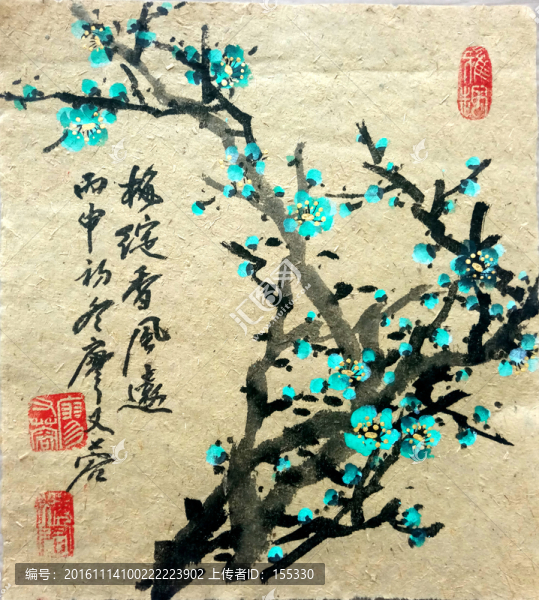 梅绽香风远
丙申初冬廖又蓉
编号：20161114100222223902 上传者ID：155330